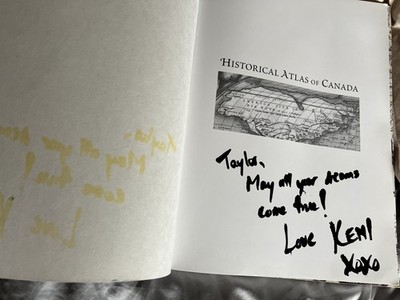 HISTORICAL ATLAS OF CANADA
Taylor,
May all your dreams
come true!
Love KEN!
XOXO